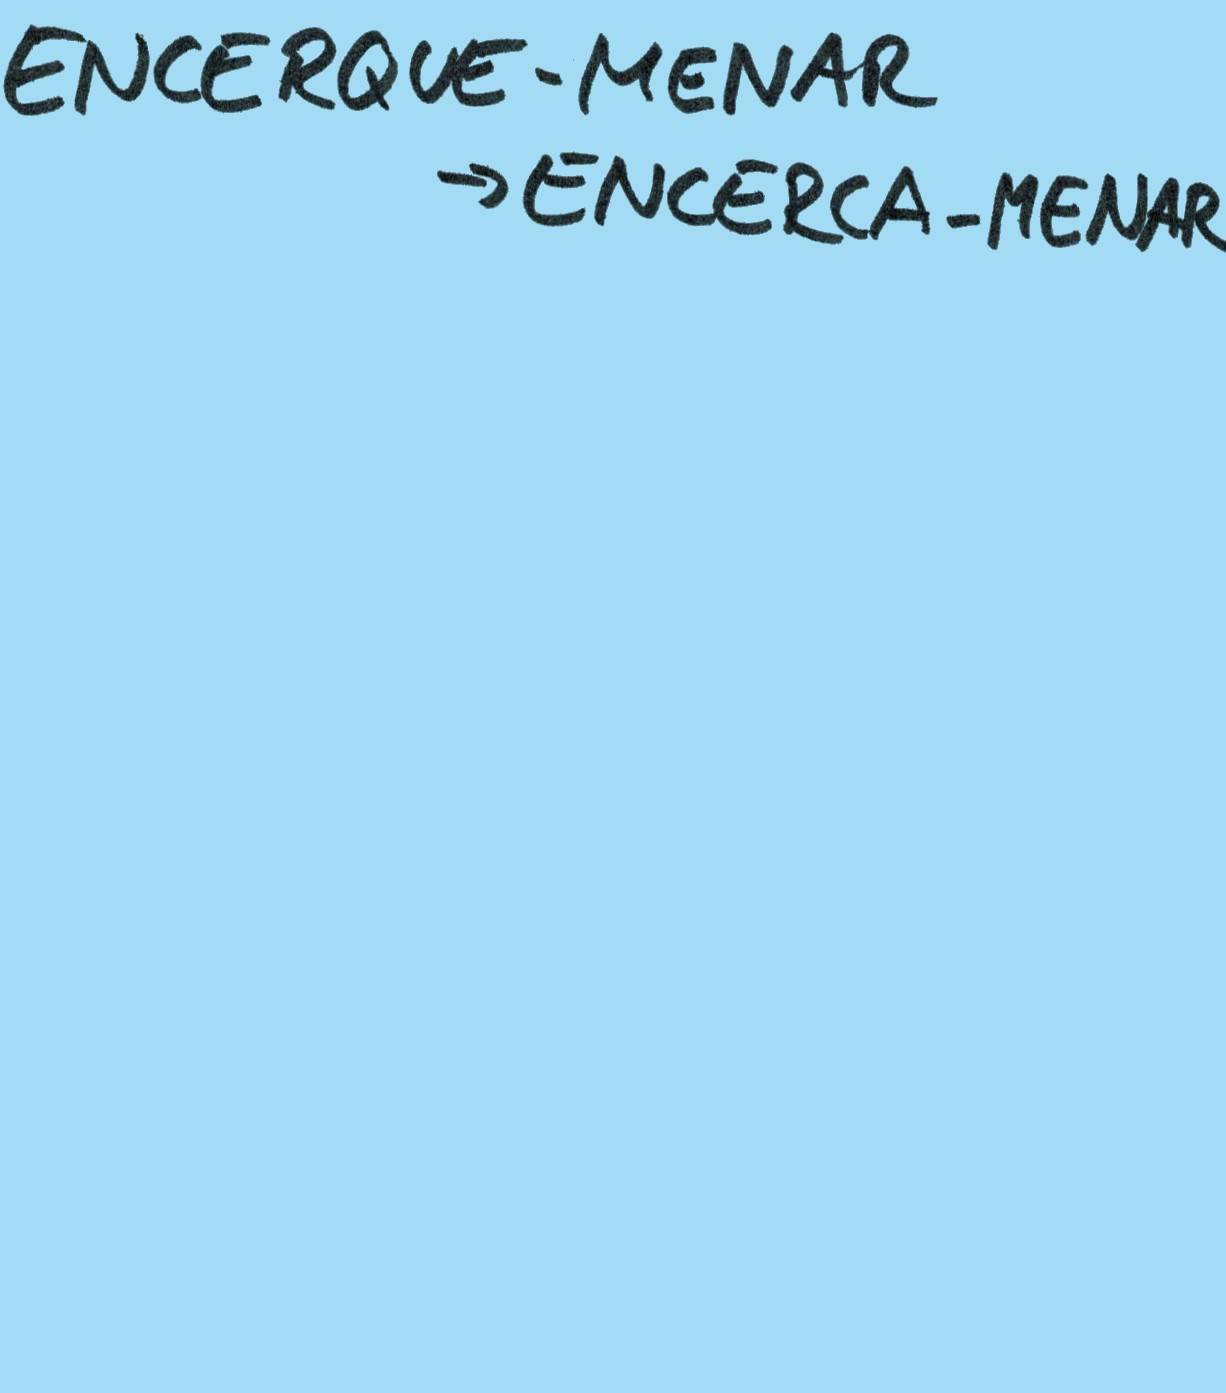 ENCERQUE-MENAR
→ENCERCA-MENAR